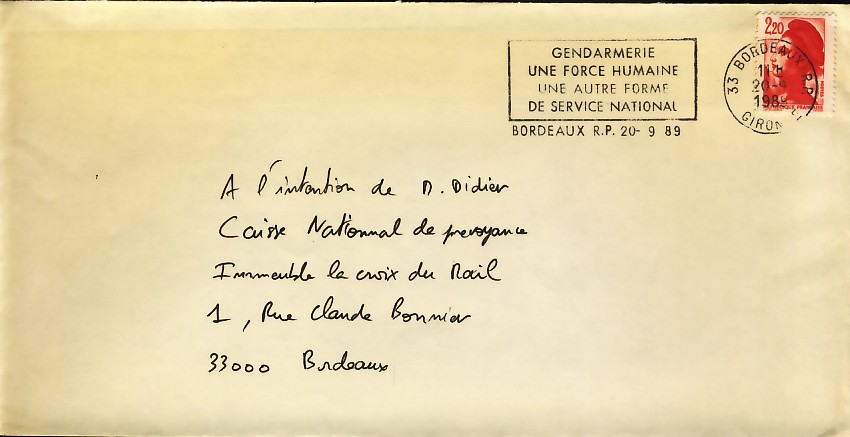 GENDARMERIE
UNE FORCE HUMAINE
UNE AUTRE FORME
DE SERVICE NATIONAL
BORDEAUX R.P. 20- 9 89
2,20
33 BORDEAUX R.P.
11H
20-9
1989
GIRONDE
A l'intention de M. Didier
Caisse National de prevoyance
Immeuble la croix du Mail
1, Rue Claude Bonnier
33000 Bordeaux